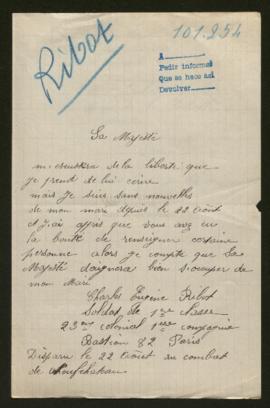 Ribot
101.254
A
Pedir informes
Que se hace así
Devolver
Sa Majesté
m'escusera de la liberté que
je prend de lui ecrire
mais je suis sans nouvelles
de mon mari depuis le 22 Aout
et j'ai appris que vous avez eu
la bonté de renseigner certaine
personne alors je compte que Sa
Majesté daignera bien s'occuper de
mon Mari
Charles Eugène Ribot
Soldat de 1ere classe
23me colonial 1ere compagnie
Bastion 82 Paris
Disparu le 22 Aout au combat
de Neufchateau